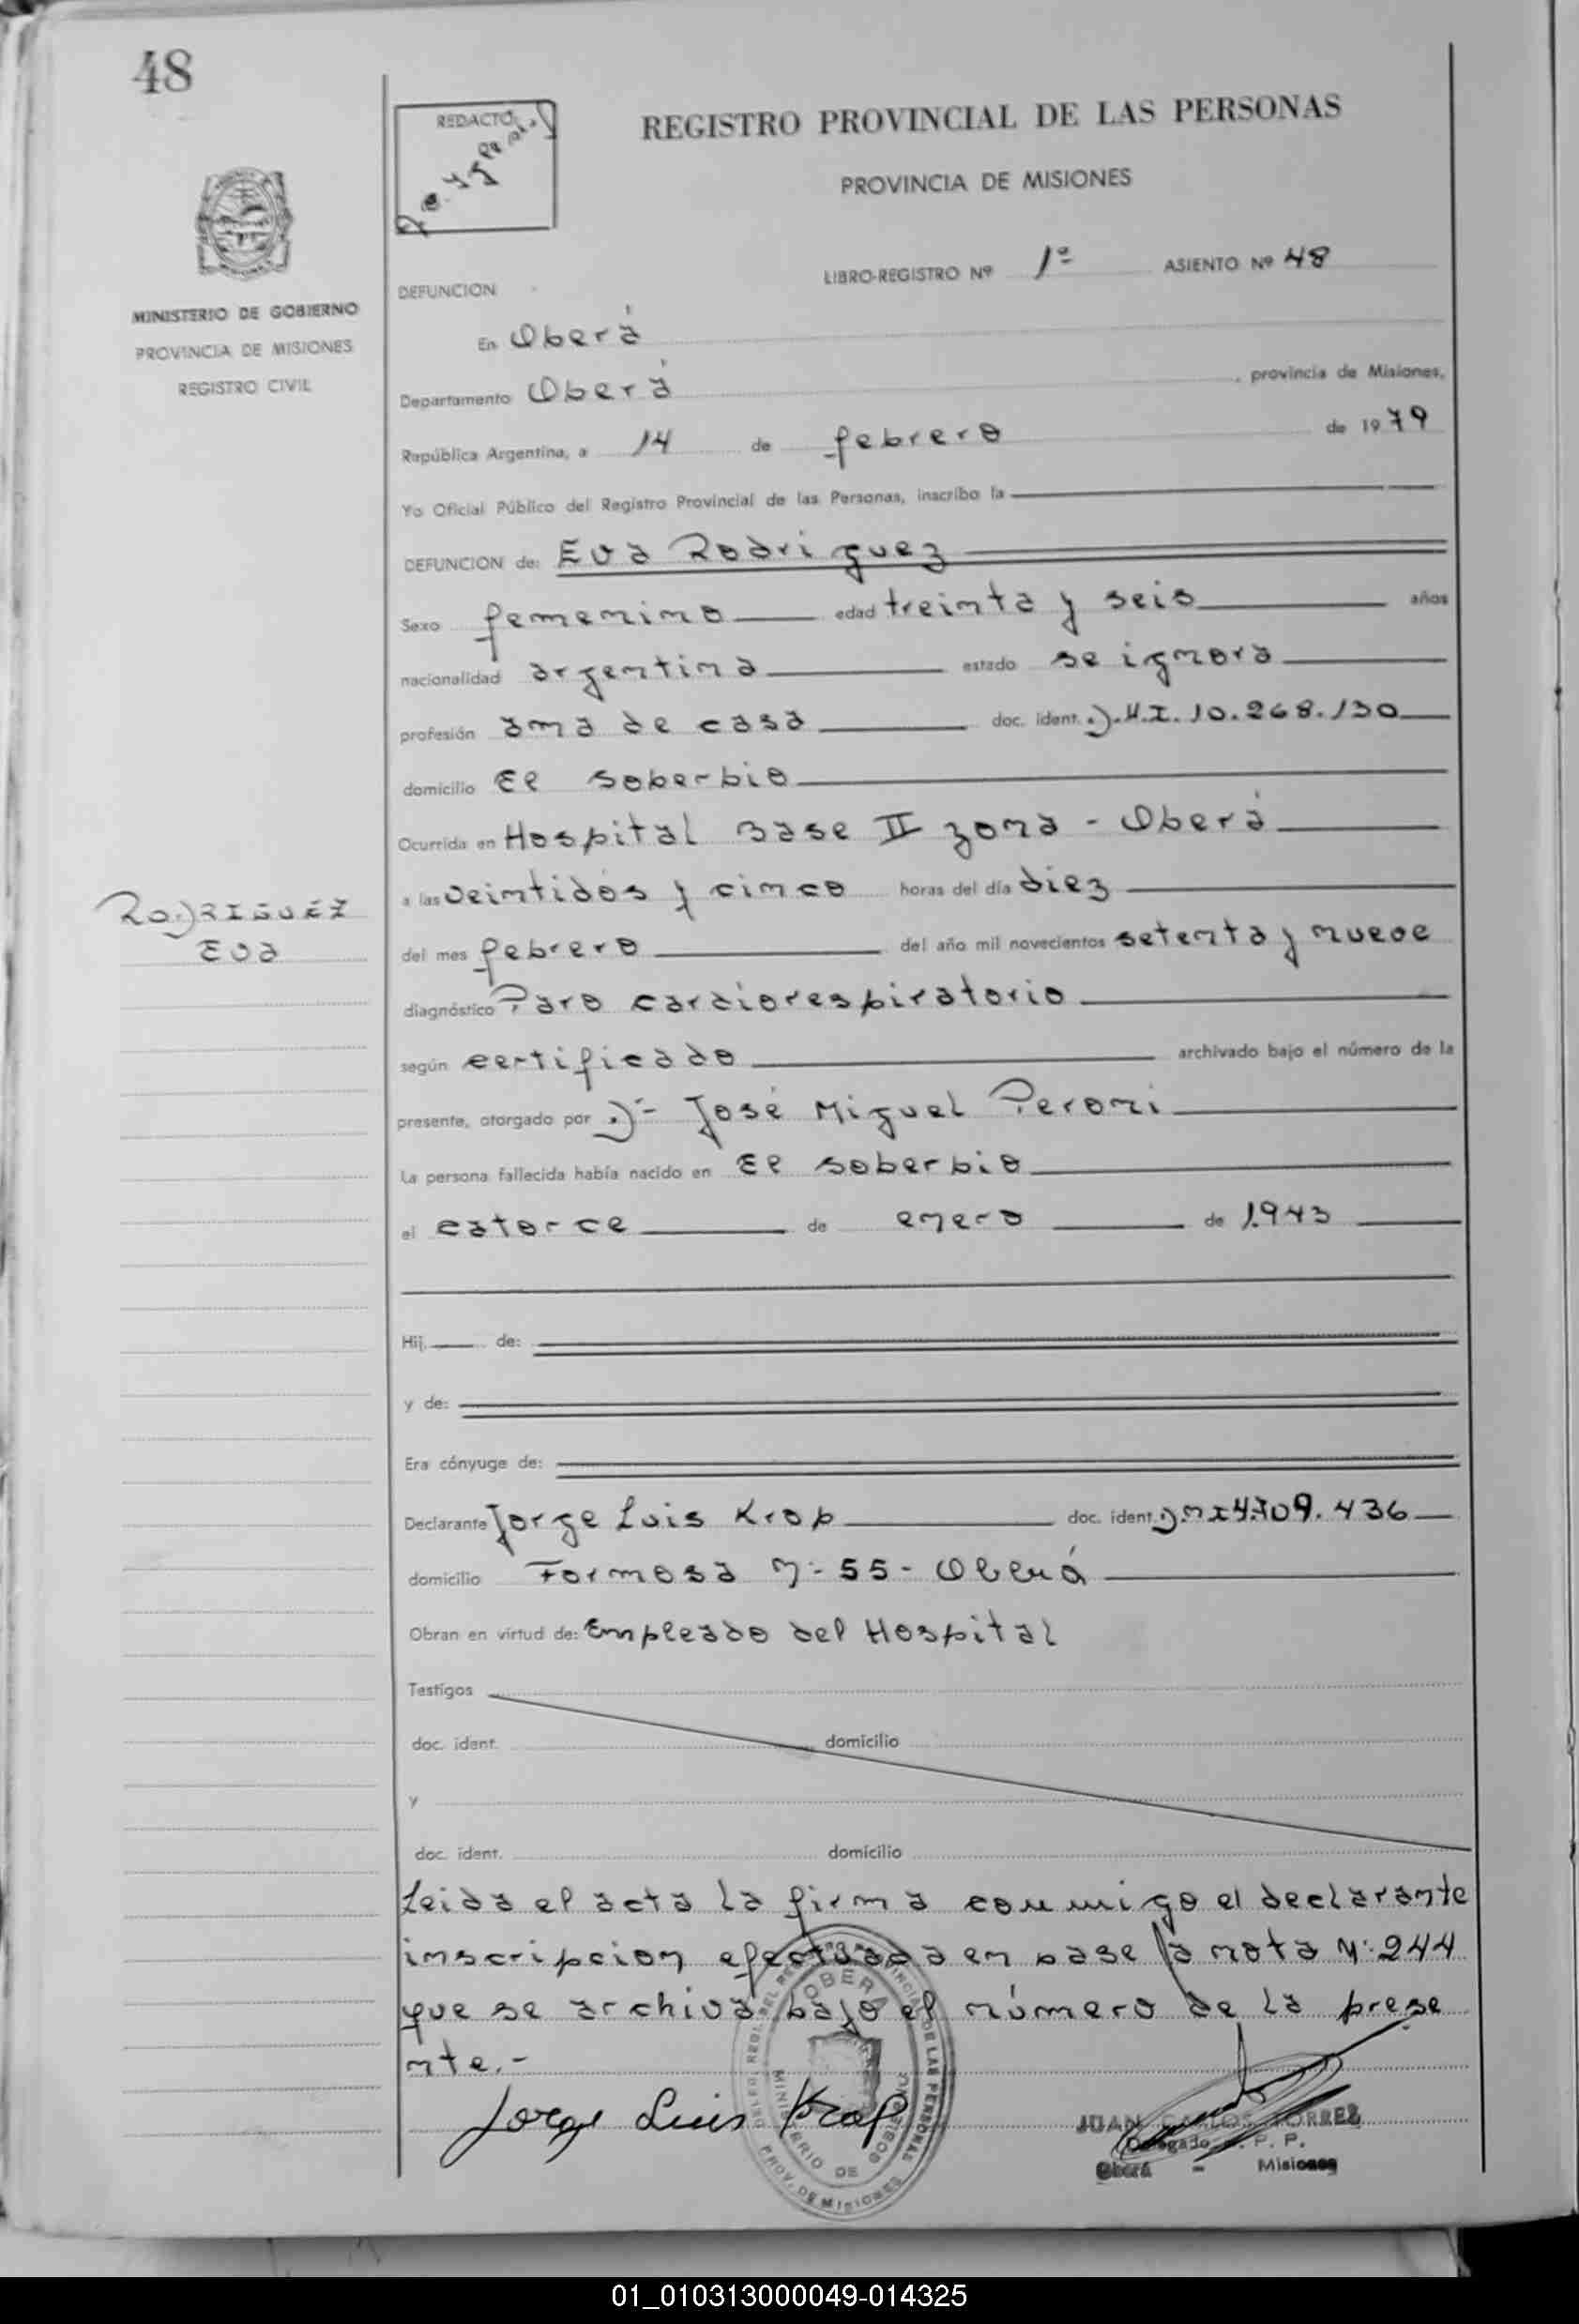 48
REDACTO
REGISTRO PROVINCIAL DE LAS PERSONAS
PROVINCIA DE MISIONES
LIBRO-REGISTRO Nº 1º ASIENTO Nº 48
MINISTERIO DE GOBIERNO
PROVINCIA DE MISIONES
REGISTRO CIVIL
DEFUNCION
En Oberá
Departamento Oberá, provincia de Misiones,
República Argentina, a 14 de febrero de 1979
Yo Oficial Público del Registro Provincial de las Personas, inscribo la
DEFUNCION de: Eva Rodriguez
Sexo femenino edad treinta y seis años
nacionalidad argentina estado se ignora
profesión ama de casa doc. ident. D.N.I. 10.268.130
domicilio El soberbio
Ocurrida en Hospital Base II zona - Oberá
a las veintidós y cinco horas del día diez
RODRIGUEZ
Eva
del mes febrero del año mil novecientos setenta y nueve
diagnóstico Paro cardiorespiratorio
según certificado archivado bajo el número de la
presente, otorgado por Dr José Miguel Peroni
La persona fallecida había nacido en El soberbio
el catorce de enero de 1.943
Hij de:
y de:
Era cónyuge de:
Declarante Jorge Luis Krop doc. ident. D.N.I 4.709.436
domicilio Formosa Nº 55 - Oberá
Obran en virtud de: Empleado del Hospital
Testigos
doc. ident. domicilio
y
doc. ident. domicilio
Leida el acta la firma conmigo el declarante
inscripcion efectuada en base la nota Nº 244
que se archiva bajo el número de la prese
nte.-
Jorge Luis Krop
JUAN CARLOS TORRES
Delegado R. P. P.
Oberá - Misiones
OBERA
MINISTERIO DE GOBIERNO
PROV. DE MISIONES
01_010313000049-014325